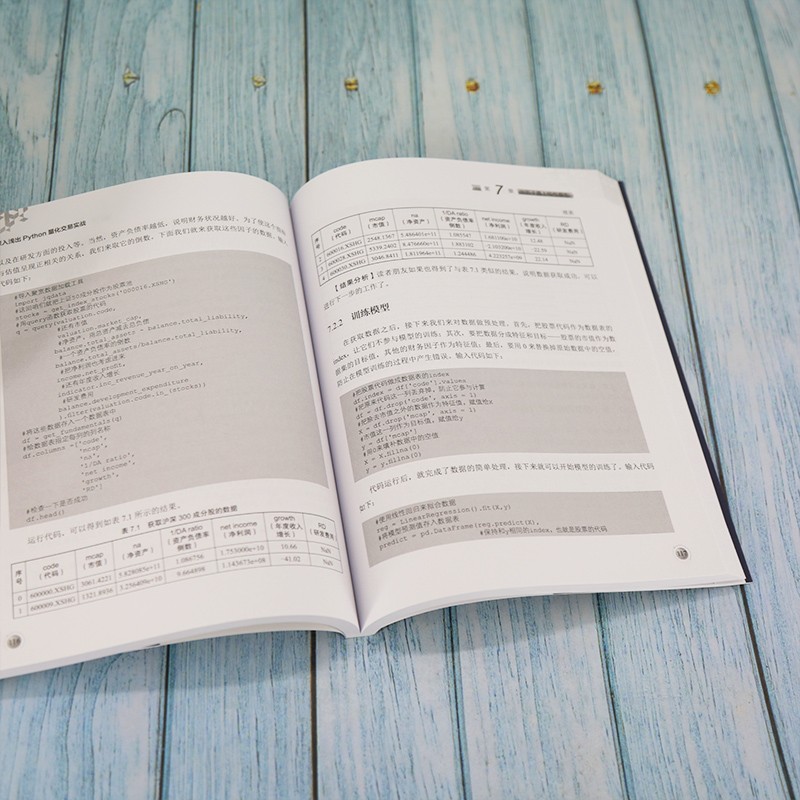 深入浅出 Python 量化交易实战
以及在研发方面的投入等。当然，资产负债率越低，说明财务状况越好，为了使这个指标
与估值呈现正相关的关系，我们来取它的倒数。下面我们就来获取这些因子的数据，输入
代码如下：
#导入聚宽数据加载工具
import jqdata
#这回咱们就把上证50成分股作为股票池
stocks = get_index_stocks('000016.XSHG')
#用query函数获取股票的代码
q = query(valuation.code,
#还有市值
valuation.market_cap,
#净资产，用总资产减去总负债
balance.total_assets - balance.total_liability,
#一个资产负债率的倒数
balance.total_assets/balance.total_liability,
#把净利润也考虑进来
income.net_profit,
#还有年度收入增长
indicator.inc_revenue_year_on_year,
#研发费用
balance.development_expenditure
).filter(valuation.code.in_(stocks))
#将这些数据存入一个数据表中
df = get_fundamentals(q)
#给数据表指定每列的列名称
df.columns = ['code',
'mcap',
'na',
'1/DA ratio',
'net income',
'growth',
'RD']
#检查一下是否成功
df.head()
运行代码，可以得到如表 7.1 所示的结果。
表 7.1 获取沪深 300 成分股的数据
序号 code（代码） mcap（市值） na（净资产） 1/DA ratio（资产负债率倒数） net income（净利润） growth（年度收入增长） RD（研发费用）
0 600000.XSHG 3061.4221 5.828085e+11 1.086756 1.753000e+10 10.66 NaN
1 600009.XSHG 1321.8936 3.256409e+10 9.664898 1.143673e+08 -41.02 NaN
第 7 章
续表
序号 code（代码） mcap（市值） na（净资产） 1/DA ratio（资产负债率倒数） net income（净利润） growth（年度收入增长） RD（研发费用）
2 600016.XSHG 2548.1367 5.486401e+11 NaN
3 600028.XSHG 5339.2402 8.476660e+11 NaN
4 600030.XSHG 3046.8411 1.811964e+11 22.14 NaN
【结果分析】读者朋友如果也得到了与表 7.1 类似的结果，说明数据获取成功，可以
进行下一步的工作了。
7.2.2 训练模型
在获取数据之后，接下来我们来对数据做预处理。首先，把股票代码作为数据表的
index，让它们不参与模型的训练；其次，要把数据分成特征和目标——股票的市值作为数
据集的目标值，其他的财务因子作为特征值；最后，要用 0 来替换掉原始数据中的空值，
防止在模型训练的过程中产生错误。输入代码如下：
#把股票代码做成数据表的index
df.index = df['code'].values
#把原来代码这一列丢弃掉，防止它参与计算
df = df.drop('code', axis = 1)
#把除去市值之外的数据作为特征值，赋值给X
X = df.drop('mcap', axis = 1)
#市值这一列作为目标值，赋值给y
y = df['mcap']
#用0来填补数据中的空值
X = X.fillna(0)
y = y.fillna(0)
代码运行后，就完成了数据的简单处理，接下来就可以开始模型的训练了。输入代码
如下：
#使用线性回归来拟合数据
reg = LinearRegression().fit(X,y)
#将模型预测值存入数据表
predict = pd.DataFrame(reg.predict(X),
#保持和y相同的index，也就是股票的代码